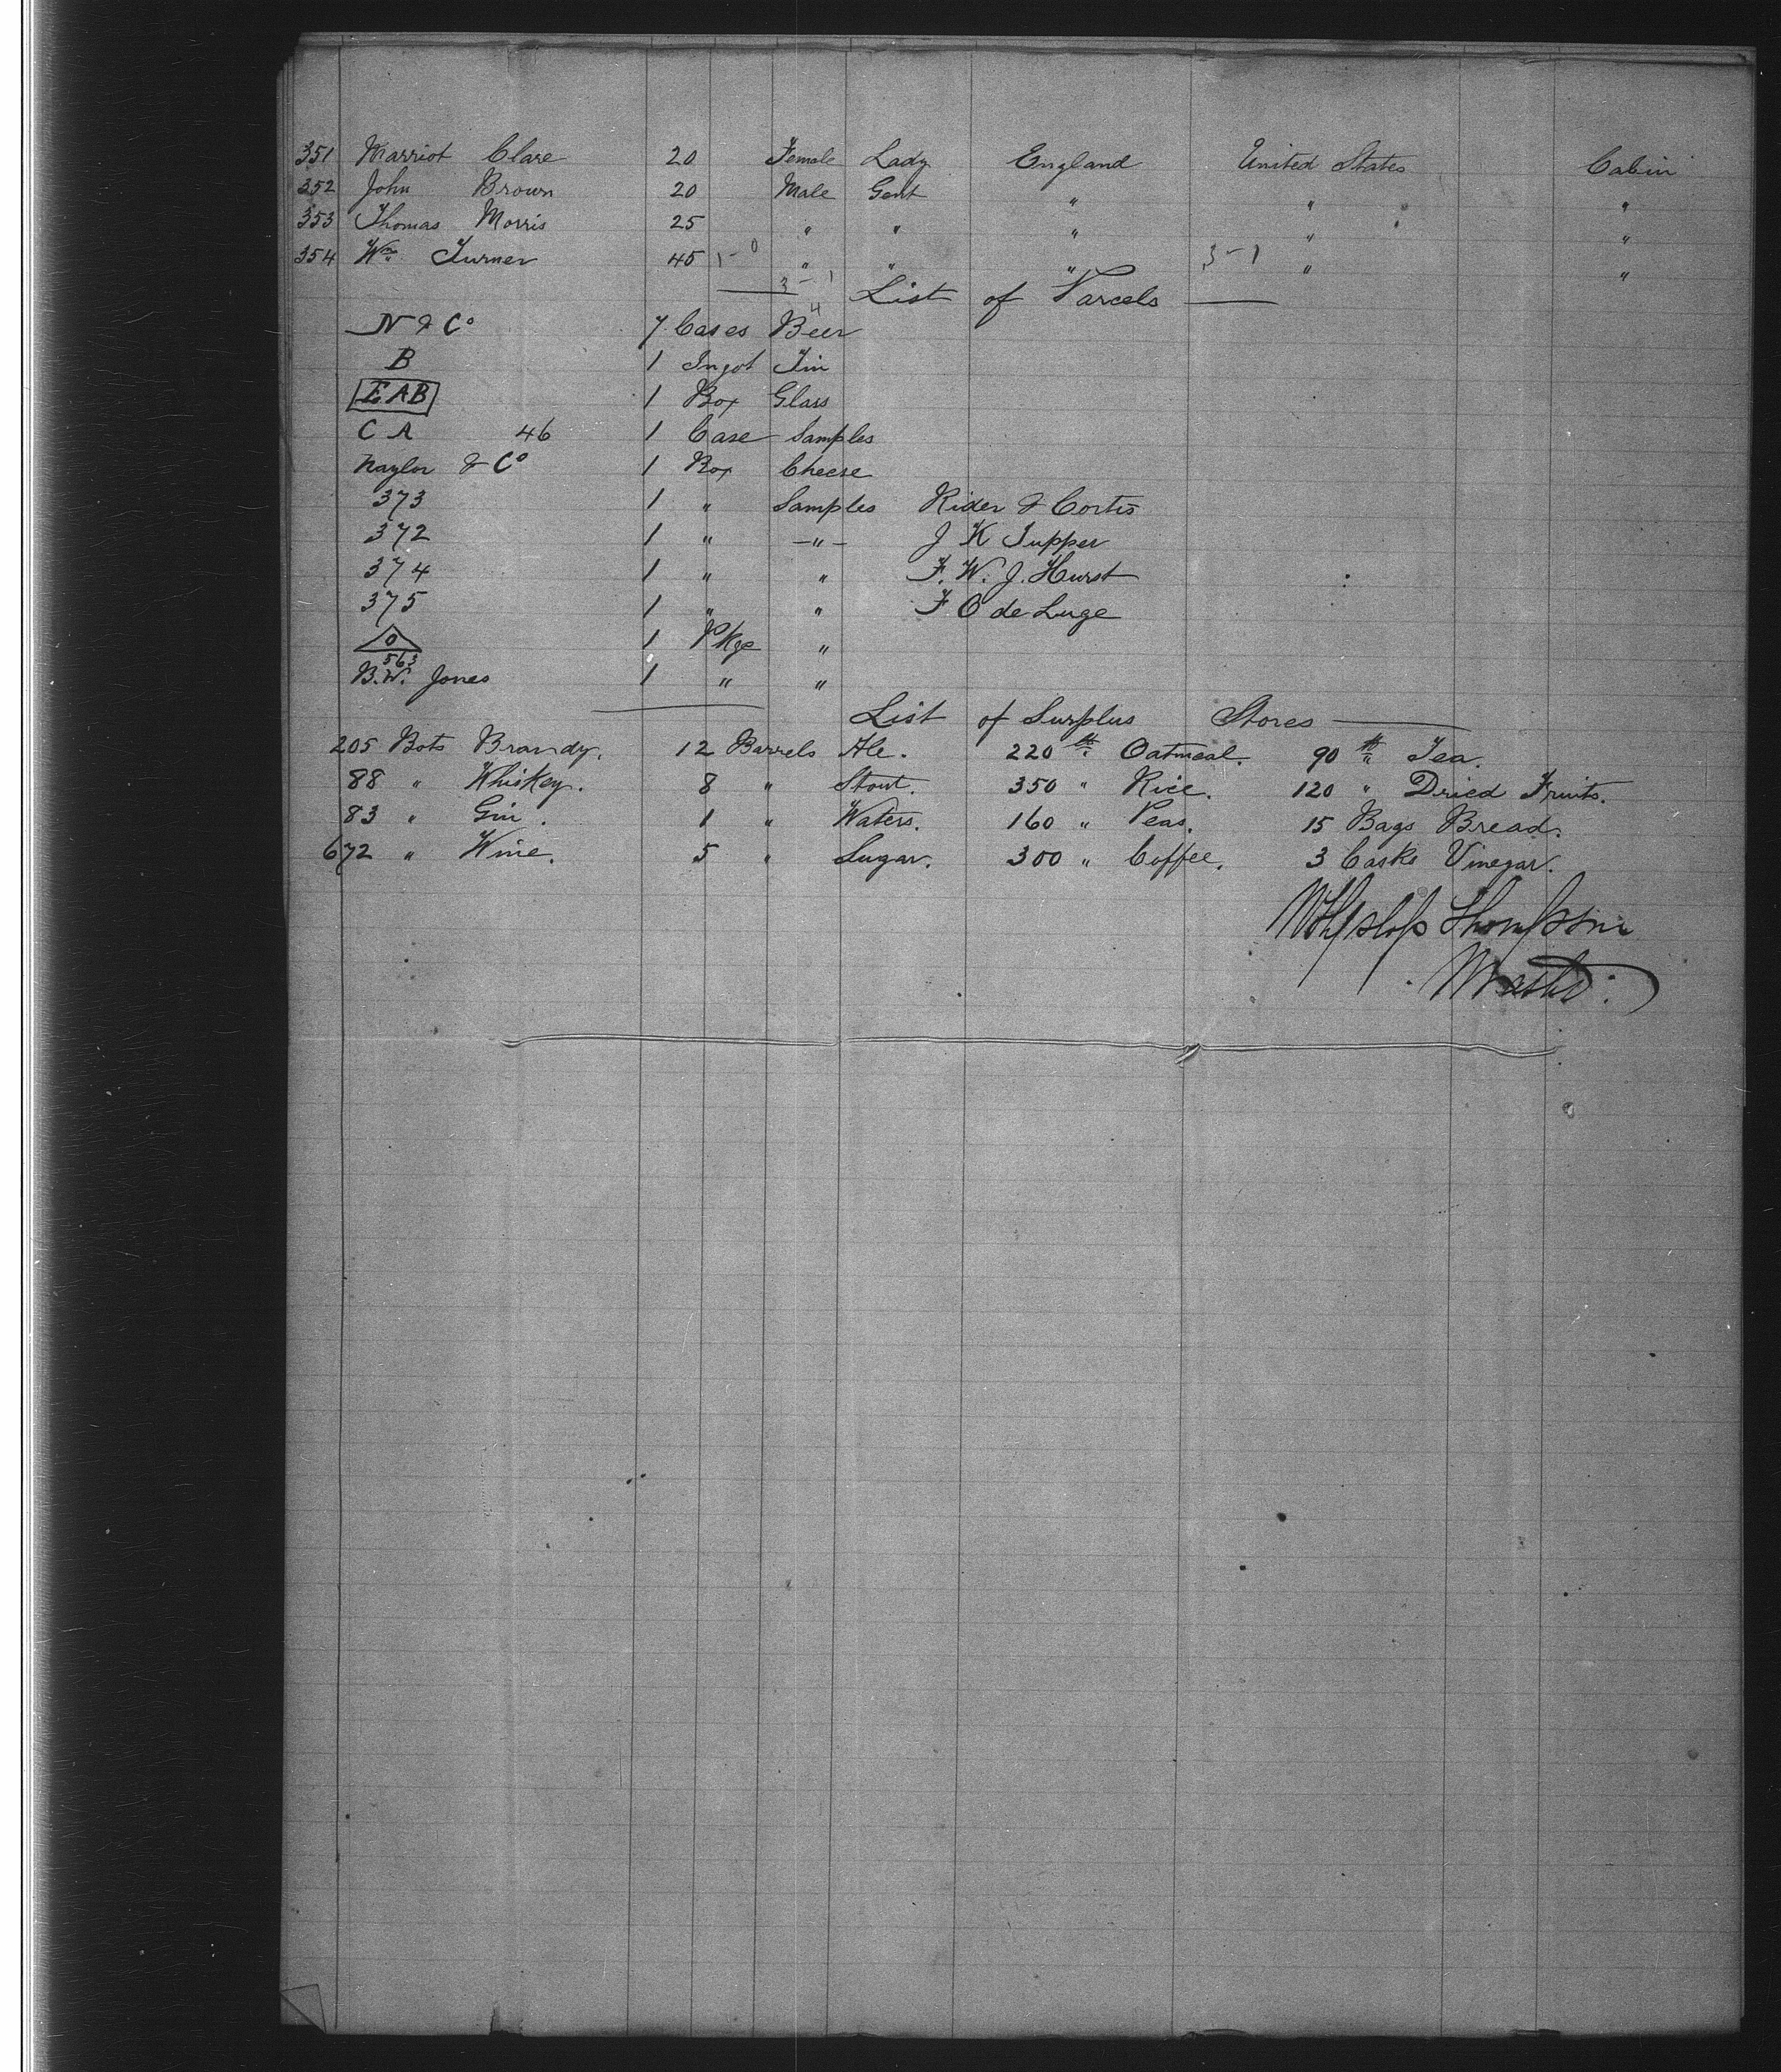 351 Marriot Clare 20 Female Lady England United States Cabin
352 John Brown 20 Male Gent " " "
353 Thomas Morris 25 " " " " "
354 Wm Turner 45 1-0 " " " 3-1 " "
3-1
4
List of Parcels
N & Co 7 Cases Beer
B 1 Ingot Tin
EAB 1 Box Glass
C A 46 1 Case Samples
Naylor & Co 1 Box Cheese
373 1 " Samples Rider & Cortis
372 1 " -"- J K Tupper
374 1 " " F. W. J. Hurst
375 1 " " F O de Luge
O 1 Pkge "
563
B.W. Jones 1 " "
List of Surplus Stores
205 Bots Brandy. 12 Barrels Ale. 220 lb Oatmeal. 90 lb Tea.
88 " Whiskey. 8 " Stout. 350 " Rice. 120 " Dried Fruits.
83 " Gin. 1 " Waters. 160 " Peas. 15 Bags Bread.
672 " Wine. 5 " Sugar. 300 " Coffee. 3 Casks Vinegar.
Thompson
Master